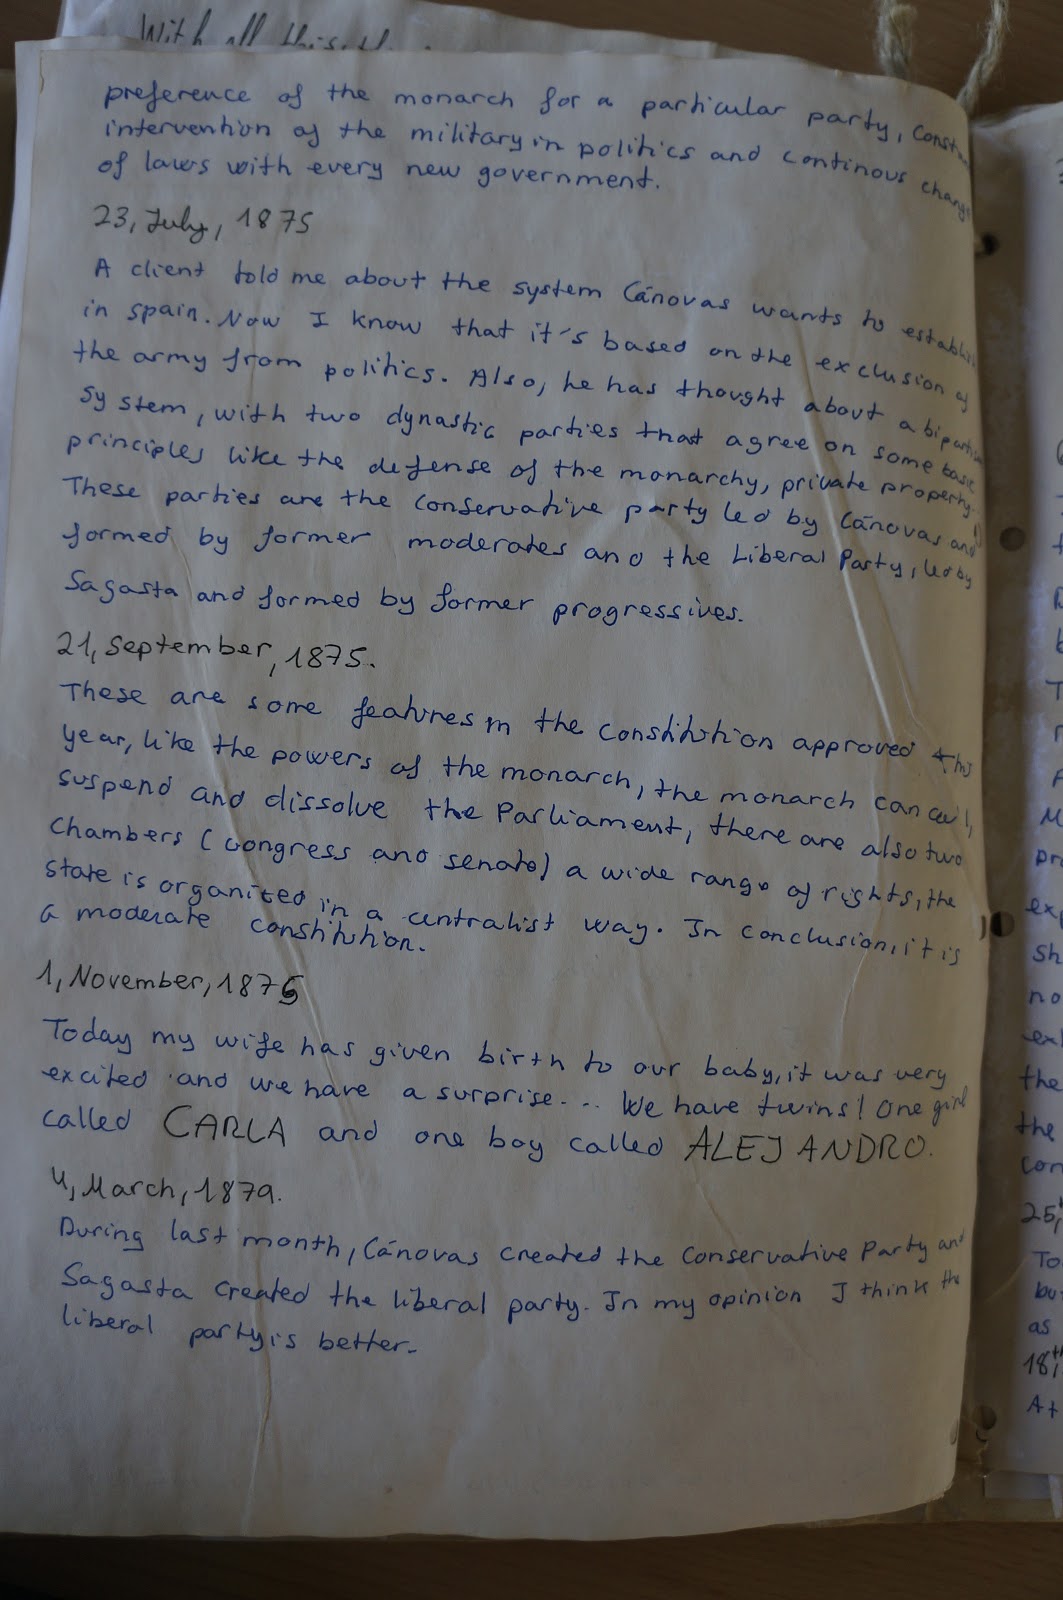 With all this, the
preference of the monarch for a particular party, const
intervention of the military in politics and continous change
of laws with every new government.
23, July, 1875
A client told me about the system Cánovas wants to establish
in spain. Now I know that it's based on the exclusion of
the army from politics. Also, he has thought about a bipartisan
system, with two dynastic parties that agree on some basic
principles like the defense of the monarchy, private property.
These parties are the conservative party led by Cánovas and
formed by former moderates and the Liberal Party, led by
Sagasta and formed by former progressives.
21, September, 1875.
These are some features in the constitution approved this
year, like the powers of the monarch, the monarch can call,
suspend and dissolve the Parliament, there are also two
chambers (congress and senate) a wide range of rights, the
state is organized in a centralist way. In conclusion, it is
a moderate constitution.
1, November, 1876
Today my wife has given birth to our baby, it was very
excited and we have a surprise... We have twins! One girl
called CARLA and one boy called ALEJANDRO.
4, March, 1879.
During last month, Cánovas created the Conservative Party and
Sagasta created the liberal party. In my opinion I think the
liberal party is better.
no
the
the
25,
To
but
as
18,th
At